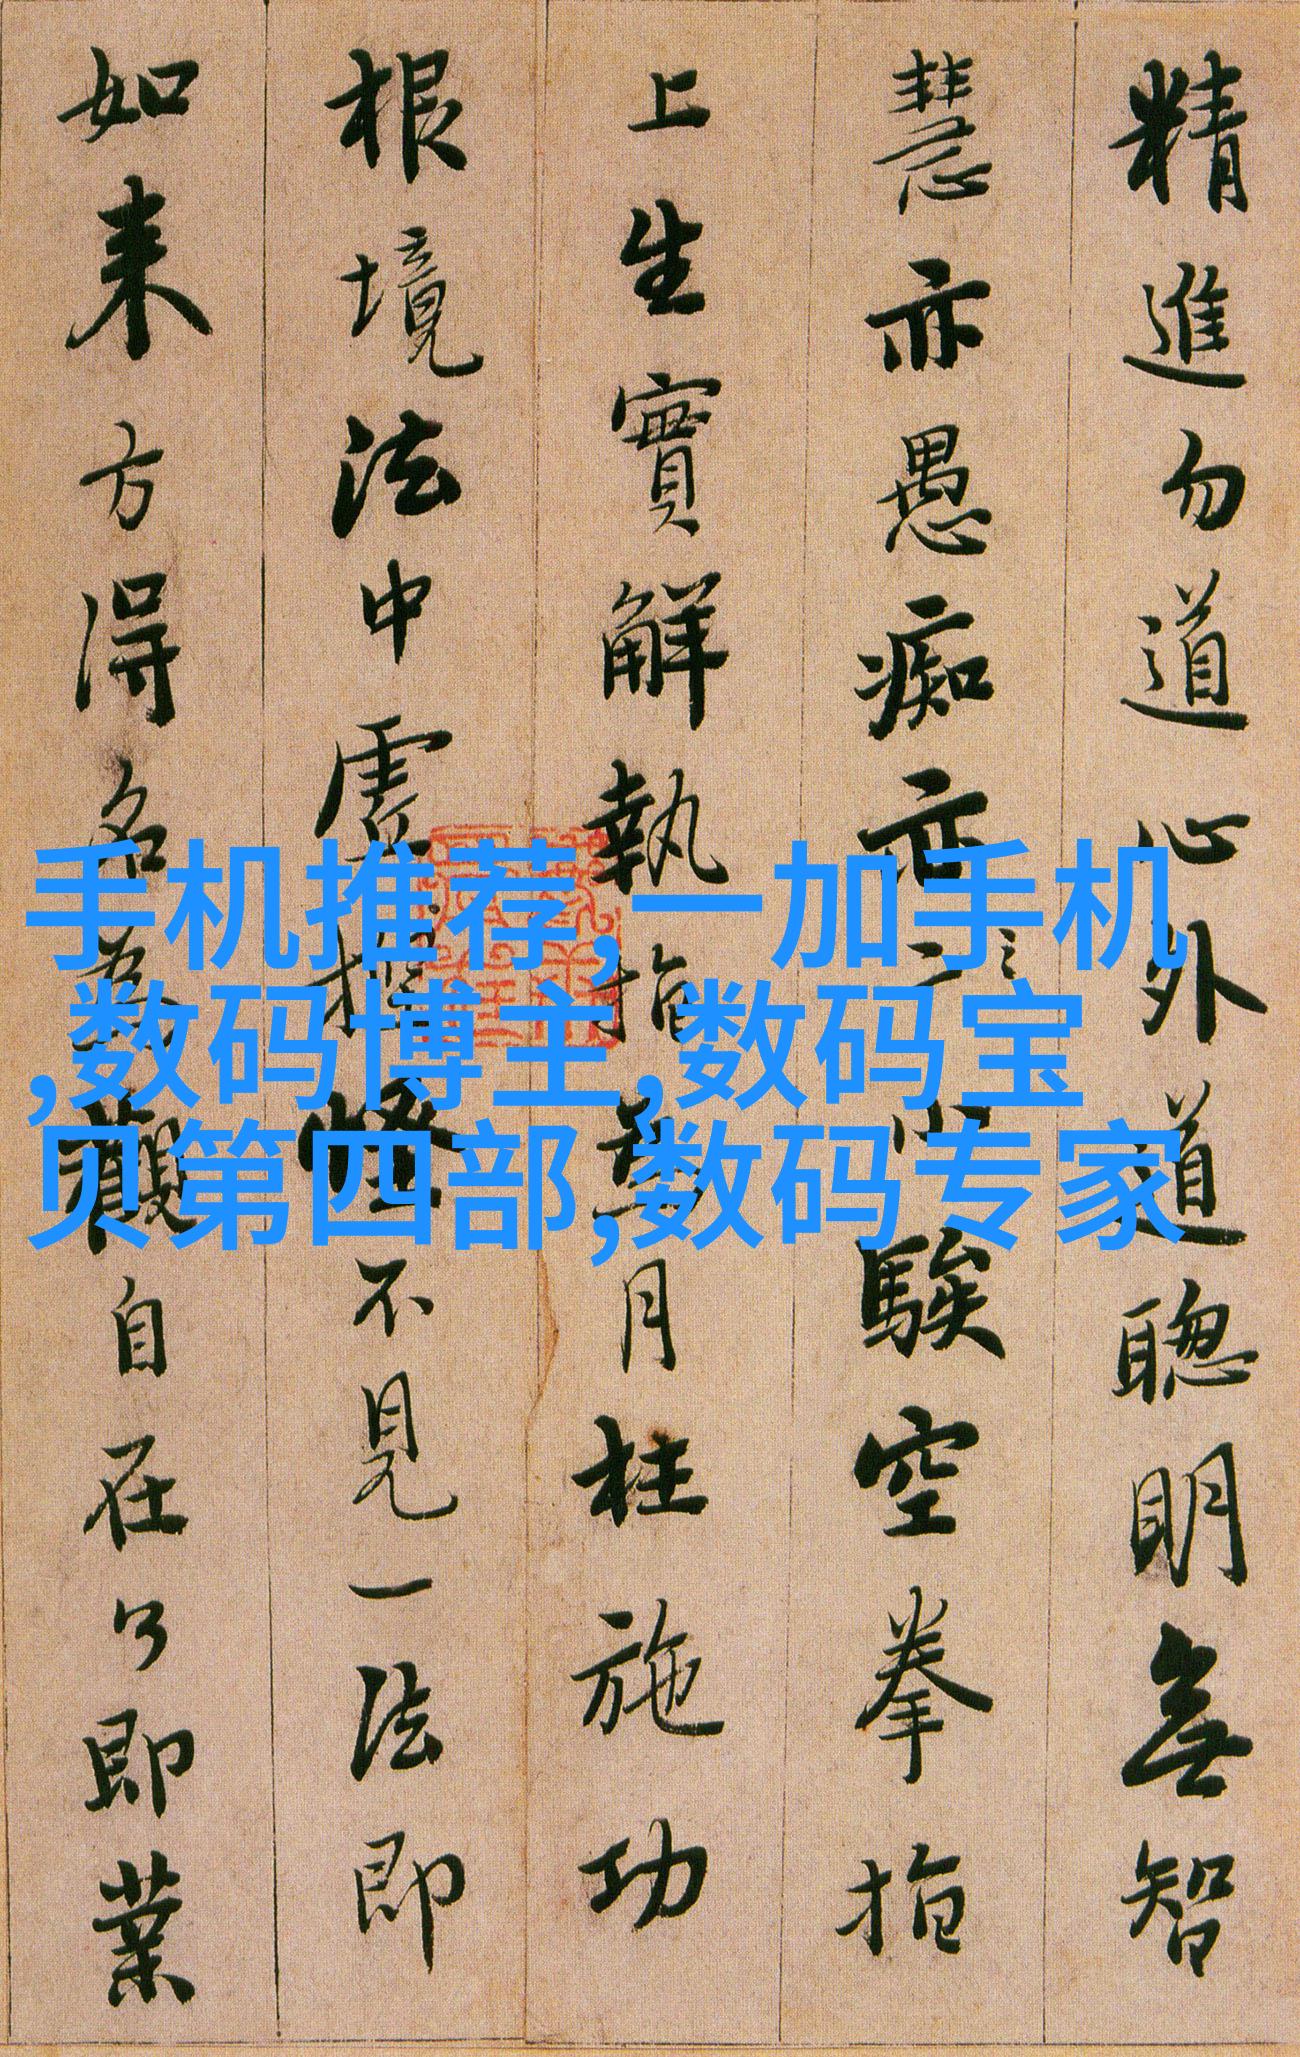 精進勿道心外道聰明無智
慧亦愚癡亦小騃空拳指
上生實解執指為月枉施功
根境法中虛捏怪不見一法即
如来方得名為觀自在了即業
手机推荐,一加手机
,数码博主,数码宝
贝第四部,数码专家